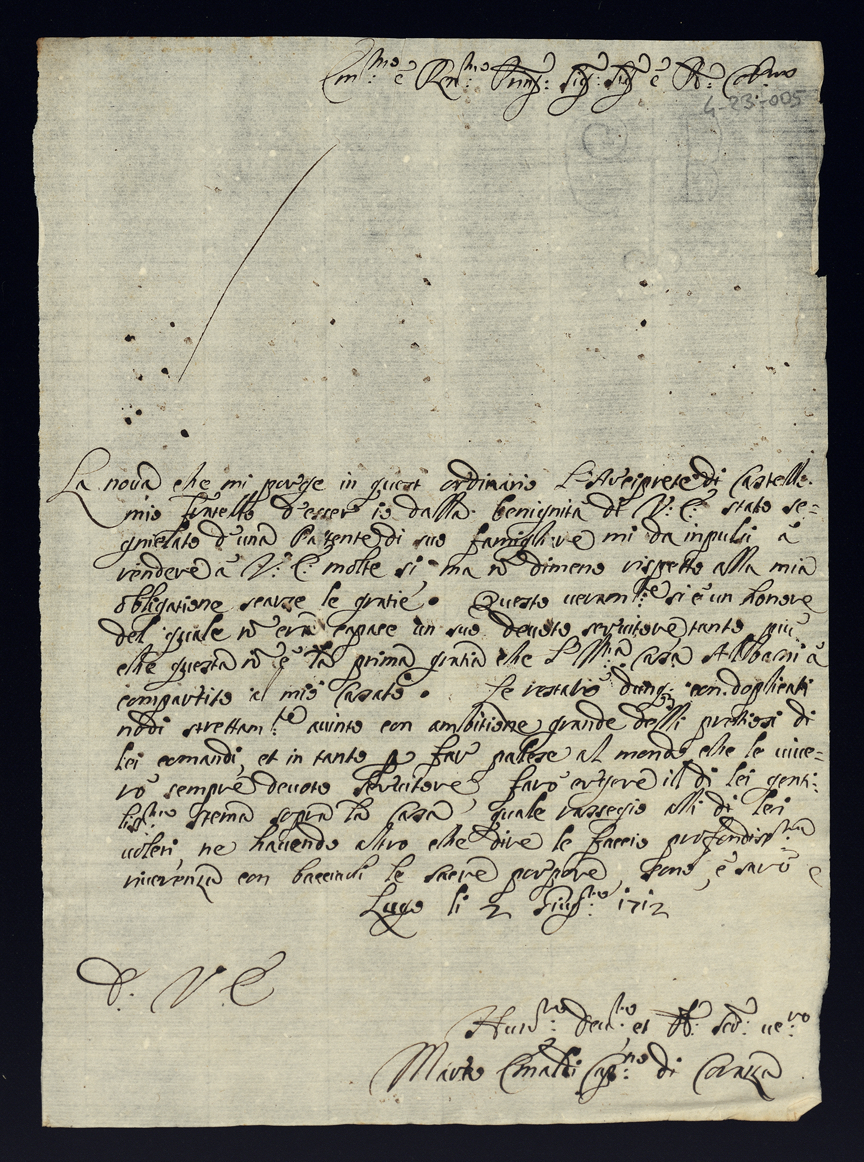 Em:mo è Rm:mo Prin: Sig: Sig è P:
4-23-005
La nova che mi porge in quest ordinario L'Arciprete di Castello
mio fratello d'esser io dalla benignità di V: E: stato se=
gnielato d'una Patente di suo famigliare mi da inpulsi à
rendere à V: E: molte si, ma nõ dimeno rispetto alla mia
obligatione scarze le gratie. Questo veram:te si è un honore
del quale nõ era capace un suo devoto servitore tanto più
che questa nõ è la prima gratia che L'Ill:ma Casa Albani à
compartito al mio Casato. Le restarò dunq; con doplicati
nodi strettam:te avinto con ambitione grande delli pretiosi di
lei comandi, et in tanto p far palese al mondo che le vive=
rò sempre devoto servitore, farò erigere il di lei genti=
liss:mo stema sopra la Casa quale rassegno alli di Lei
voleri ne havendo altro che dire le faccio profondiss:ma
riverenza con bacciarli le sacre porpore, sono, è sarò
Lugo li 2 Giug:no 1712
D. V: E:
Hum:mo dev:mo et Ser: ve:ro
Cap:no di